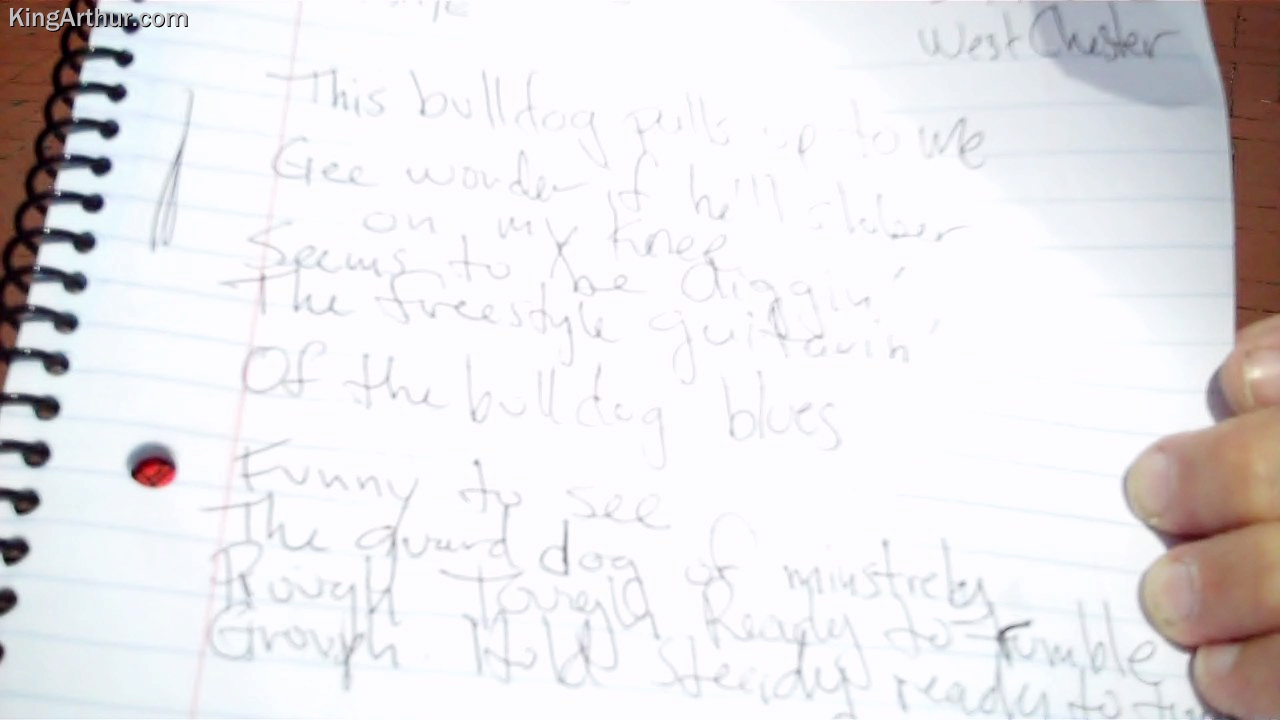 KingArthur.com
West Chester
This bulldog pulls up to me
Gee wonder if he'll slobber
on my knee
Seems to be diggin'
The freestyle guitarin'
Of the bulldog blues
Funny to see
The guard dog of minstrelsy
Rough Tough Ready to rumble
Grough Hold steady ready to